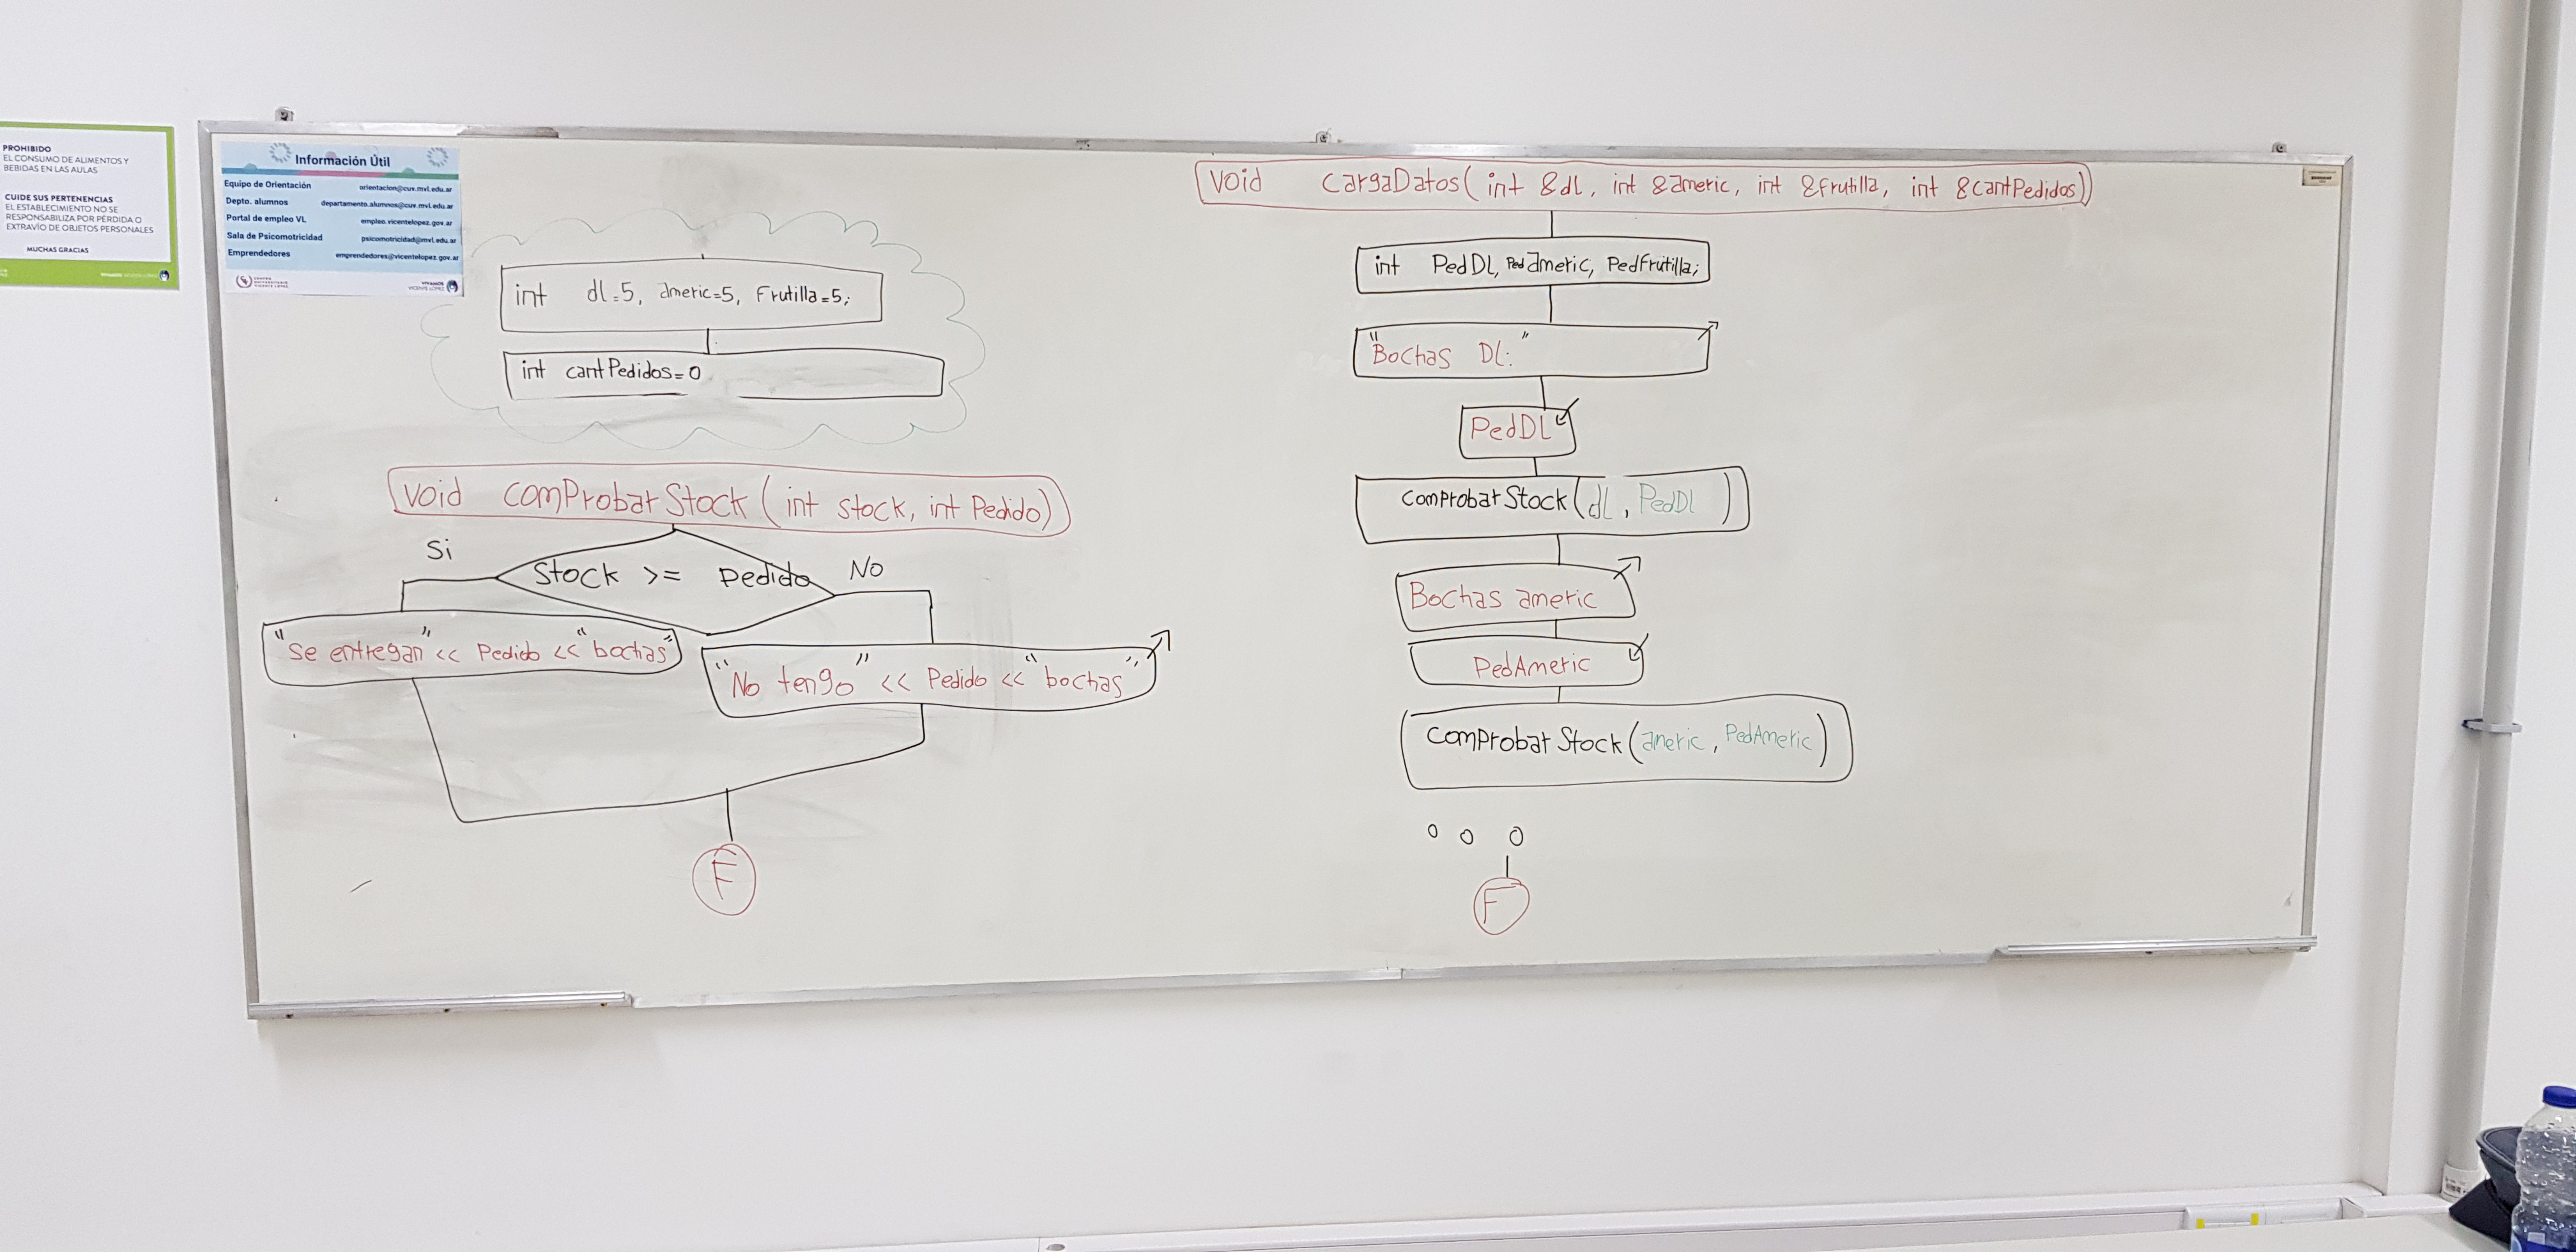 PROHIBIDO
EL CONSUMO DE ALIMENTOS Y
BEBIDAS EN LAS AULAS
CUIDE SUS PERTENENCIAS
EL ESTABLECIMIENTO NO SE
RESPONSABILIZA POR PÉRDIDA O
EXTRAVÍO DE OBJETOS PERSONALES
MUCHAS GRACIAS
Información Útil
Equipo de Orientación orientacion@cuv.mvl.edu.ar
Depto. alumnos departamento.alumnos@cuv.mvl.edu.ar
Portal de empleo VL empleo.vicentelopez.gov.ar
Sala de Psicomotricidad psicomotricidad@mvl.edu.ar
Emprendedores emprendedores@vicentelopez.gov.ar
VICENTE LÓPEZ
int dl=5, americ=5, Frutilla=5;
int cantPedidos=0
void comProbarStock(int stock, int Pedido)
Si
Stock >= Pedido
No
"se entregan" << Pedido << "bochas"
"No tengo" << Pedido << "bochas"
F
void cargaDatos(int &dl, int &americ, int &frutilla, int &cantPedidos)
int PedDL, Pedameric, Pedfrutilla;
"Bochas DL:"
PedDL
comprobarStock(dl, PedDL)
Bochas americ
PedAmeric
comprobarStock(americ, PedAmeric)
o o o
F